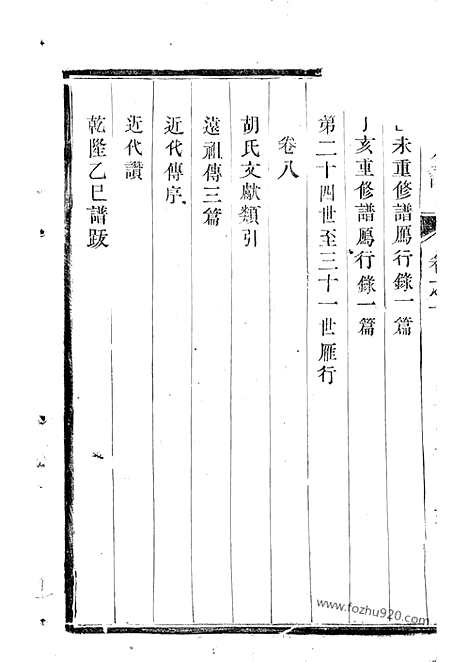 未重修譜鴈行錄一篇
丁亥重修譜鴈行錄一篇
第二十四世至三十一世雁行
卷八
胡氏文獻類引
遠祖傳三篇
近代傳序
近代讚
乾隆乙巳譜跋
www.fozhu920.com